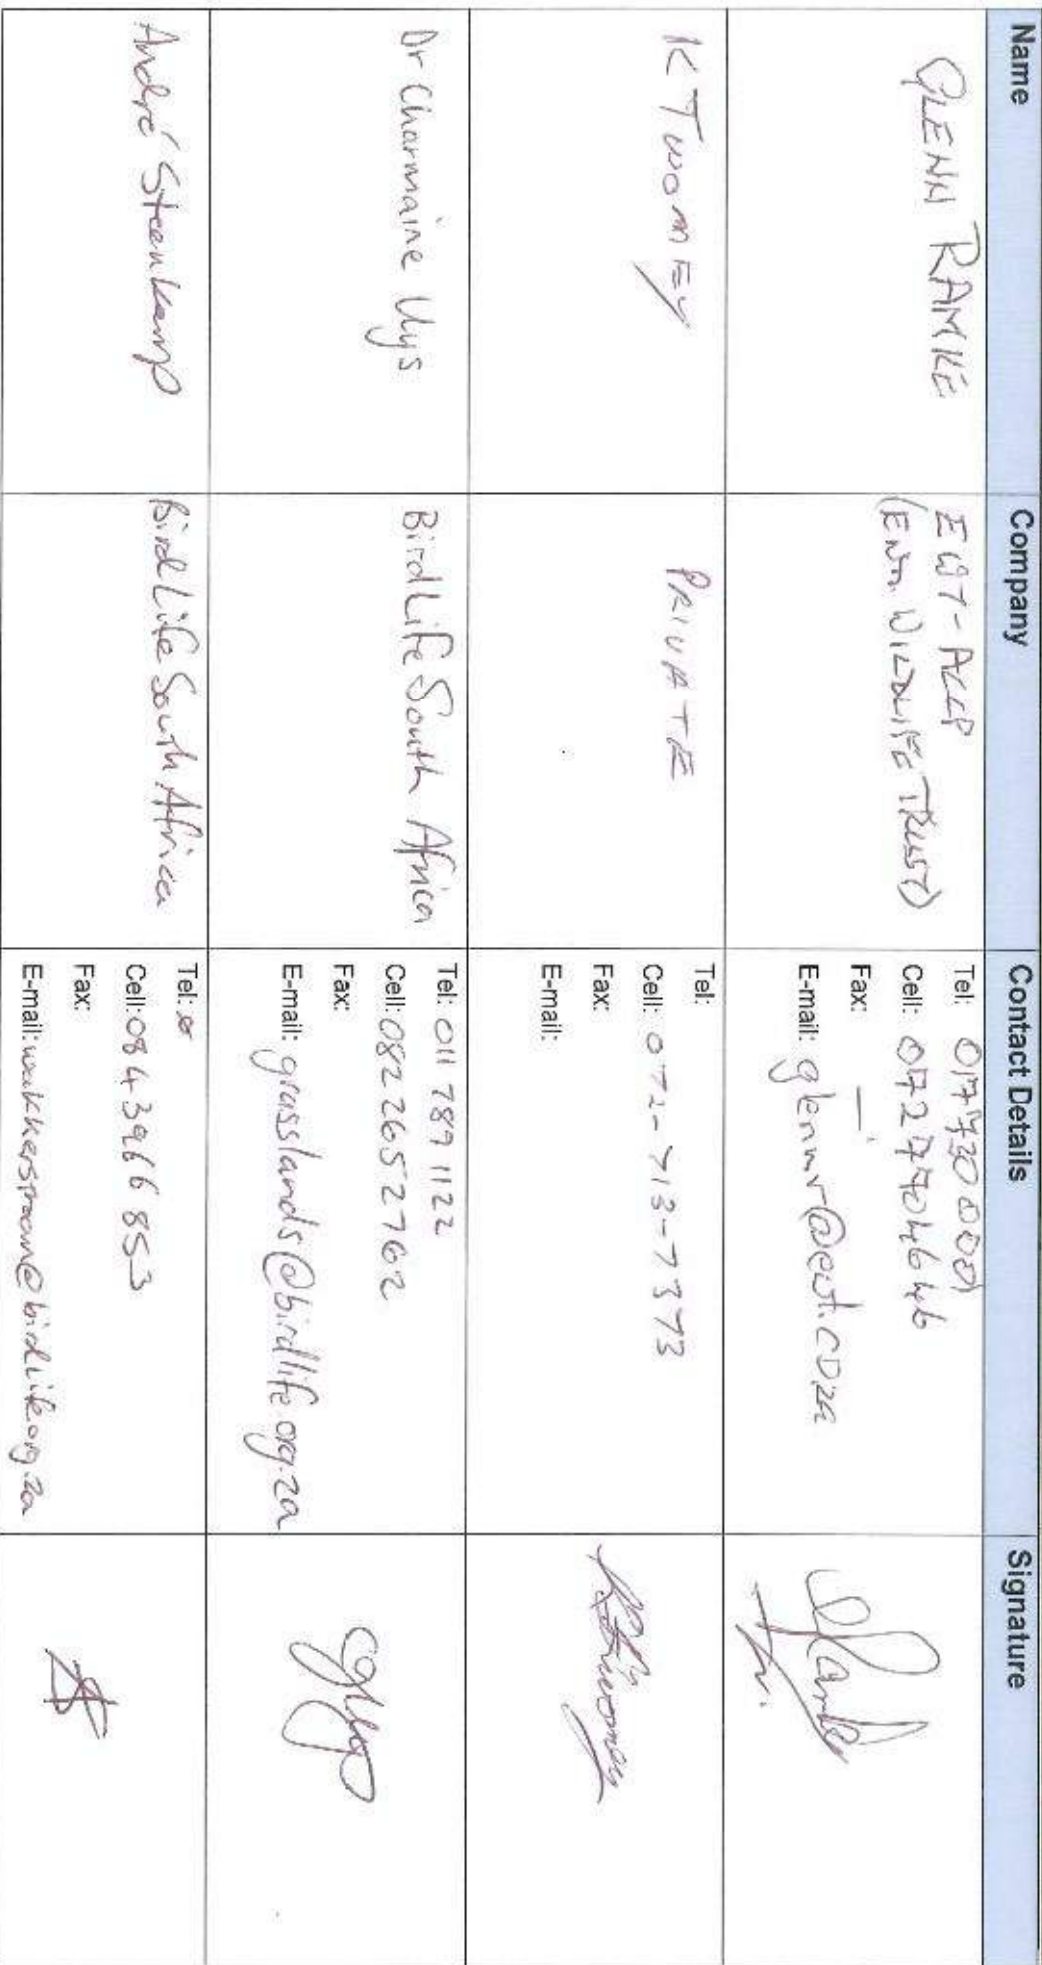 Name Company Contact Details Signature
GLENN RAMKE
EWT - ACCP
(END. WILDLIFE TRUST)
Tel: 017 730 0001
Cell:
Fax: —
E-mail: glennr@ewt.co.za
K TwomEy
PRIVATE
Tel:
Cell: 072-713-7373
Fax:
E-mail:
Dr Charmaine Uys
BirdLife South Africa
Tel: 011 789 1122
Cell: 082 265 2762
Fax:
E-mail: grasslands@birdlife.org.za
André Steenkamp
BirdLife South Africa
Tel:
Cell: 084 3966 853
Fax:
E-mail: wakkerstroom@birdlife.org.za